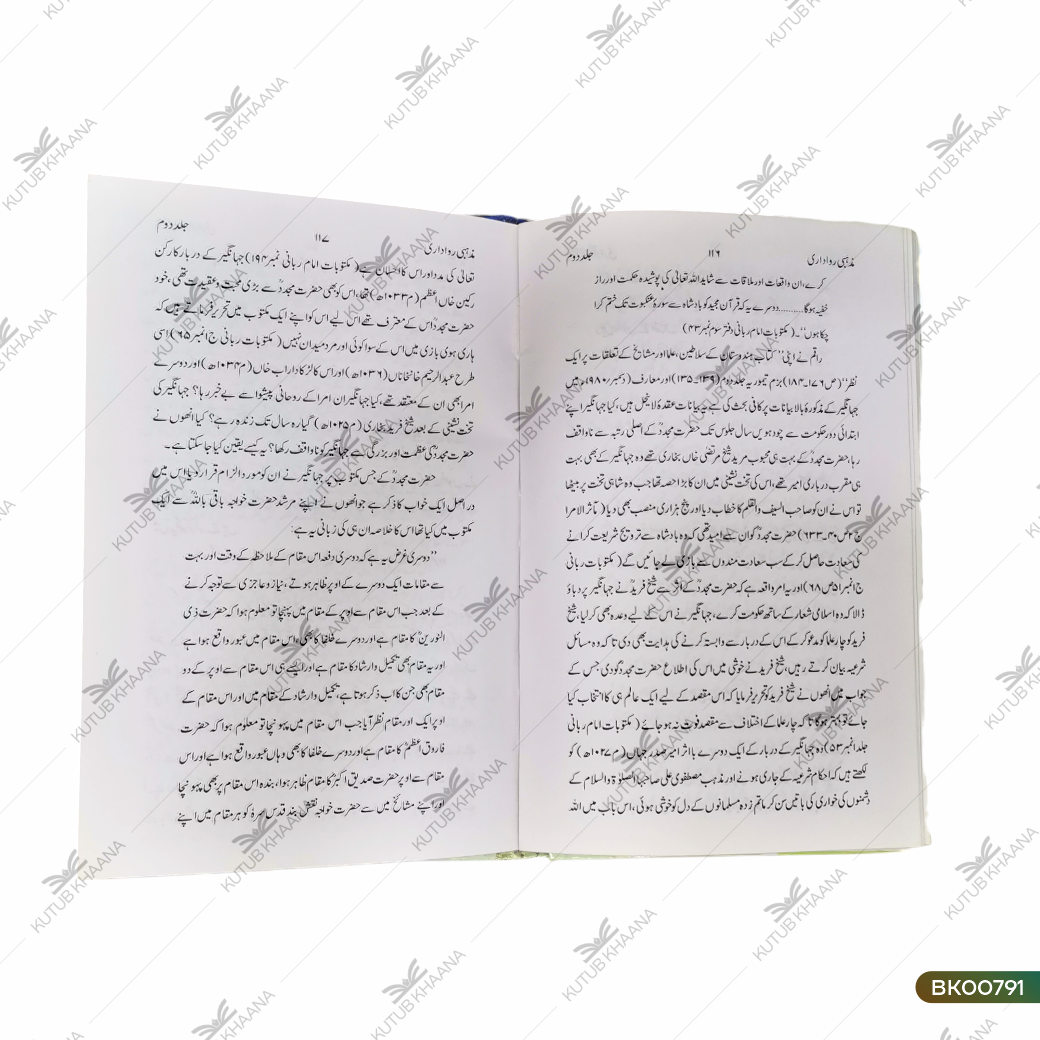 مذہبی رواداری ۱۱۶ جلد دوم
کرے، ان واقعات اور ملاقات سے شاید اللہ تعالیٰ کی پوشیدہ حکمت اور راز
خفیہ ہوگا..........دوسرے یہ کہ قرآن مجید کو بادشاہ سے سورۂ عنکبوت تک ختم کرا
چکا ہوں"۔ (مکتوبات امام ربانی دفتر سوم نمبر ۴۳)
راقم نے اپنی "کتاب ہندوستان کے سلاطین، علما اور مشائخ کے تعلقات پر ایک
نظر" (ص ۱۷۶۔۱۸۴) بزم تیموریہ جلد دوم (۱۳۹۔۱۳۵) اور معارف (دسمبر ۱۹۸۰ء) میں
جہانگیر کے مذکورۂ بالا بیانات پر کافی بحث کی ہے یہ بیانات عقدۂ لاینحل ہیں، کیا جہانگیر اپنے
ابتدائی دور حکومت سے چودہویں سال جلوس تک حضرت مجددؒ کے اصلی رتبہ سے ناواقف
رہا، حضرت مجددؒ کے بہت ہی محبوب مرید شیخ مرتضیٰ خاں بخاری تھے وہ جہانگیر کے بھی بہت
ہی مقرب درباری امیر تھے، اس کی تخت نشینی میں ان کا بڑا حصہ تھا جب وہ شاہی تخت پر بیٹھا
تو اس نے ان کو صاحب السیف والقلم کا خطاب دیا اور پنج ہزاری منصب بھی دیا (مآثر الامرا
ج ۲ ص ۶۳۳) حضرت مجددؒ کو ان سے امید تھی کہ وہ بادشاہ سے ترویج شریعت کرانے
کی سعادت حاصل کر کے سب سعادت مندوں سے بازی لے جائیں گے (مکتوبات ربانی
ج ا نمبر ۵۱ ص ۶۸) اور یہ امر واقعہ ہے کہ حضرت مجددؒ کے اثر سے شیخ فریدؒ نے جہانگیر پر دباؤ
ڈالا کہ وہ اسلامی شعار کے ساتھ حکومت کرے، جہانگیر نے اس کے لیے وعدہ بھی کر لیا، شیخ
فرید کو چار علما کو مدعو کر کے اس کے دربار سے وابستہ کرنے کی ہدایت بھی دی تا کہ وہ مسائل
شرعیہ بیان کرتے رہیں، شیخ فرید نے خوشی میں اس کی اطلاع حضرت مجددؒ کو دی جس کے
جواب میں انھوں نے شیخ فرید کو تحریر فرمایا کہ اس مقصد کے لیے ایک عالم ہی کا انتخاب کیا
جائے تو بہتر ہوگا تا کہ چار علما کے اختلاف سے مقصد فوت نہ ہو جائے (مکتوبات امام ربانی
جلد ا نمبر ۵۳) وہ جہانگیر کے دربار کے ایک دوسرے با اثر امیر صدر جہاں (م ۱۰۲۷ھ) کو
لکھتے ہیں کہ احکام شرعیہ کے جاری ہونے اور مذہب مصطفوی علی صاحبہا الصلوٰۃ والسلام کے
دشمنوں کی خواری کی باتیں سن کر ماتم زدہ مسلمانوں کے دل کو خوشی ہوئی، اس باب میں اللہ
مذہبی رواداری ۱۱۷ جلد دوم
تعالیٰ کی مدد اور اس کا احسان ہے (مکتوبات امام ربانی نمبر ۱۹۴) جہانگیر کے دربار کا رکن
رکین خاں اعظم (م ۱۰۳۳ھ) تھا، اس کو بھی حضرت مجددؒ سے بڑی محبت و عقیدت تھی، خود
حضرت مجددؒ اس کے معترف تھے اس لیے اس کو اپنے ایک مکتوب میں تحریر فرماتے ہیں کہ
ہاری ہوی بازی میں اس کے سوا کوئی اور مرد میدان نہیں (مکتوبات ربانی ج ا نمبر ۶۵) اسی
طرح عبدالرحیم خانخاناں (۱۰۳۶ھ) اور اس کا لڑکا داراب خاں (م ۱۰۳۴ھ) اور دوسرے
امرا بھی ان کے معتقد تھے، کیا جہانگیر ان امرا کے روحانی پیشوا سے بے خبر رہا؟ جہانگیر کی
تخت نشینی کے بعد شیخ فرید بخاری (م ۱۰۲۵ھ) گیارہ سال تک زندہ رہے؟ کیا انھوں نے
حضرت مجددؒ کی عظمت اور بزرگی سے جہانگیر کو ناواقف رکھا؟ یہ کیسے یقین کیا جا سکتا ہے۔
حضرت مجددؒ کے جس مکتوب پر جہانگیر نے ان کو مورد الزام قرار دیا اس میں
در اصل ایک خواب کا ذکر ہے جو انھوں نے اپنے مرشد حضرت خواجہ باقی باللہؒ سے ایک
مکتوب میں کیا تھا اس کا خلاصہ ان ہی کی زبانی یہ ہے:
"دوسری عرض یہ ہے کہ دوسری دفعہ اس مقام کے ملاحظہ کے وقت اور بہت
سے مقامات ایک دوسرے کے اوپر ظاہر ہوئے، نیاز و عاجزی سے توجہ کرنے
کے بعد جب اس مقام سے اوپر کے مقام میں پہنچا تو معلوم ہوا کہ حضرت ذی
النورینؓ کا مقام ہے اور دوسرے خلفا کا بھی اس مقام میں عبور واقع ہوا ہے
اور یہ مقام بھی تکمیل و ارشاد کا مقام ہے اور ایسے ہی اس مقام سے اوپر کے دو
مقام بھی جن کا اب ذکر ہوتا ہے، تکمیل و ارشاد کے مقام میں اور اس مقام کے
اوپر ایک اور مقام نظر آیا جب اس مقام میں پہونچا تو معلوم ہوا کہ حضرت
فاروق اعظمؓ کا مقام ہے اور دوسرے خلفا کا بھی وہاں عبور واقع ہوا ہے اور اس
مقام سے اوپر حضرت صدیق اکبرؓ کا مقام ظاہر ہوا، بندہ اس مقام پر بھی پہونچا
اور اپنے مشائخ میں سے حضرت خواجہ نقشبند قدس سرہٗ کو ہر مقام میں اپنے
KUTUB KHAANA
BK00791